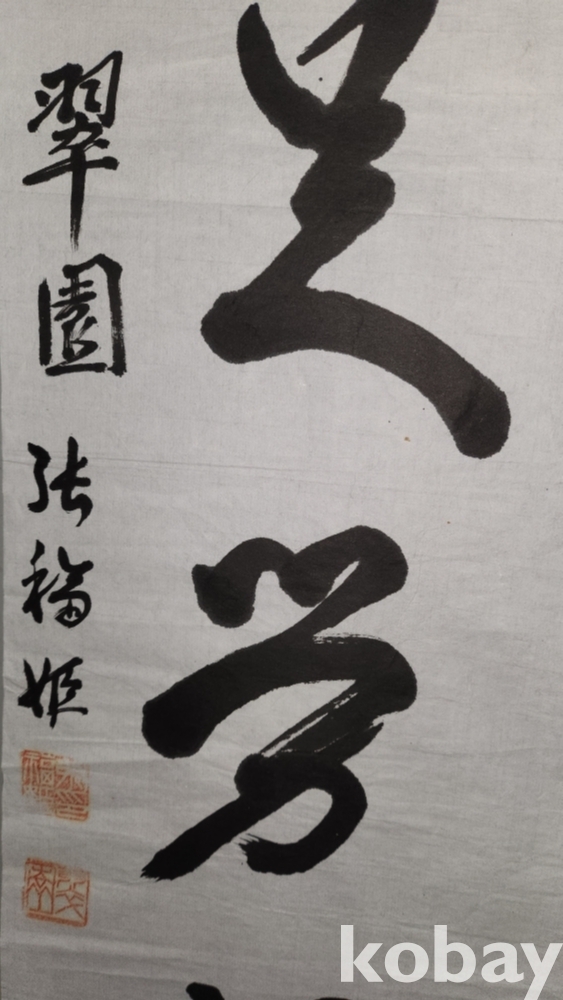 足勞
翠園 張福姬
kobay